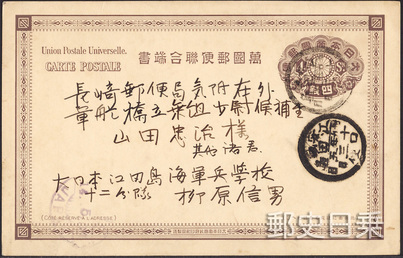 Union Postale Universelle.
CARTE POSTALE
書端合聯便郵國萬
長崎郵便局気附在外
軍艦橋立乗組少尉候補生
山田忠治様
其他諸君
大日本江田島海軍兵学校
十二分隊
柳原信男
(CÔTÉ RÉSERVÉ À L'ADRESSE.)
郵史日乗